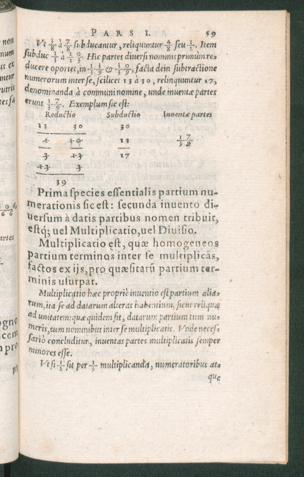 PARS I. 59
subducantur, relinquuntur seu Item
subduc à Hic partes diversi nominis primùm re-
ducere oportet, in & facta dein subtractione
numerorum inter se, scilicet 13 à 30, relinquuntur 17,
denominanda à communi nomine, unde inventæ partes
erunt Exemplum sic est:
Reductio Subductio Inventæ partes
13 30 30
13
17
39
Prima species essentialis partium nu-
merationis sic est: secunda invento di-
versum à datis partibus nomen tribuit,
estq; vel Multiplicatio, vel Divisio.
Multiplicatio est, quæ homogeneos
partium terminos inter se multiplicãs,
factos ex ijs, pro quæsitarũ partium ter-
minis usurpat.
Multiplicatio hæc propriè inventio est partium alia-
rum, ita se ad datarum alteras habentium, sicut reliquæ
ad unitatem: quæ quidem fit, datarum partium tum nu-
meris, tum nominibus inter se multiplicatis. Unde neces-
sariò concluditur, inventas partes multiplicatis semper
minores esse.
Ut si sit per multiplicanda, numeratoribus at-
que